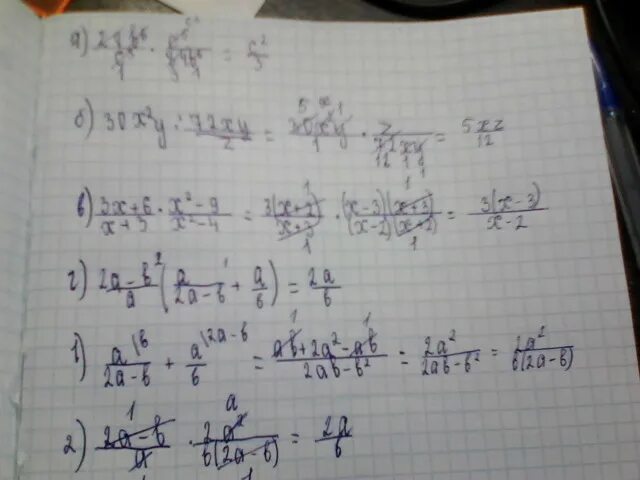 б) 30x²y : 72xy/z = 30x²y/1 · z/72xy = 5xz/12
в) 3x+6/x+3 · x²-9/x²-4 = 3(x+2)/x+3 · (x-3)(x+3)/(x-2)(x+2) = 3(x-3)/x-2
г) 2a-b/a (a/2a-b + a/b) = 2a/b
1) a/2a-b + a/b = ab+2a²-ab/2ab-b² = 2a²/2ab-b² = 2a²/b(2a-b)
2) 2a-b/a · 2a²/b(2a-b) = 2a/b